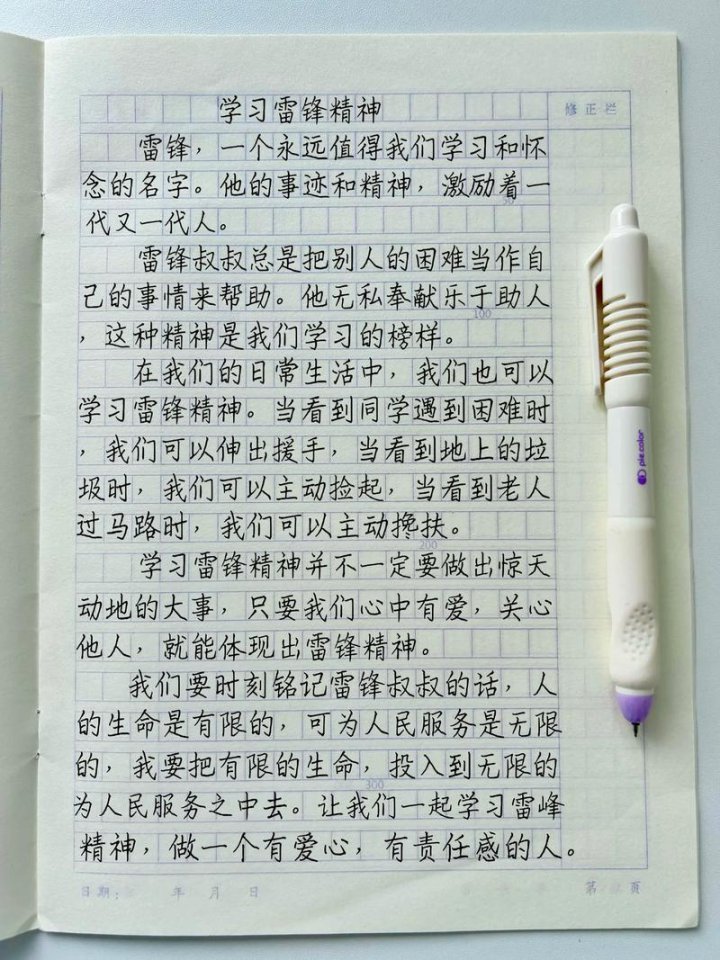 学习雷锋精神
修正栏
雷锋，一个永远值得我们学习和怀
念的名字。他的事迹和精神，激励着一
代又一代人。
雷锋叔叔总是把别人的困难当作自
己的事情来帮助。他无私奉献乐于助人
，这种精神是我们学习的榜样。
100
在我们的日常生活中，我们也可以
学习雷锋精神。当看到同学遇到困难时
，我们可以伸出援手，当看到地上的垃
圾时，我们可以主动捡起，当看到老人
过马路时，我们可以主动搀扶。
200
学习雷锋精神并不一定要做出惊天
动地的大事，只要我们心中有爱，关心
他人，就能体现出雷锋精神。
我们要时刻铭记雷锋叔叔的话，人
的生命是有限的，可为人民服务是无限
的，我要把有限的生命，投入到无限的
300
为人民服务之中去。让我们一起学习雷峰
精神，做一个有爱心，有责任感的人。
日期： 年 月 日
第 页
pie color